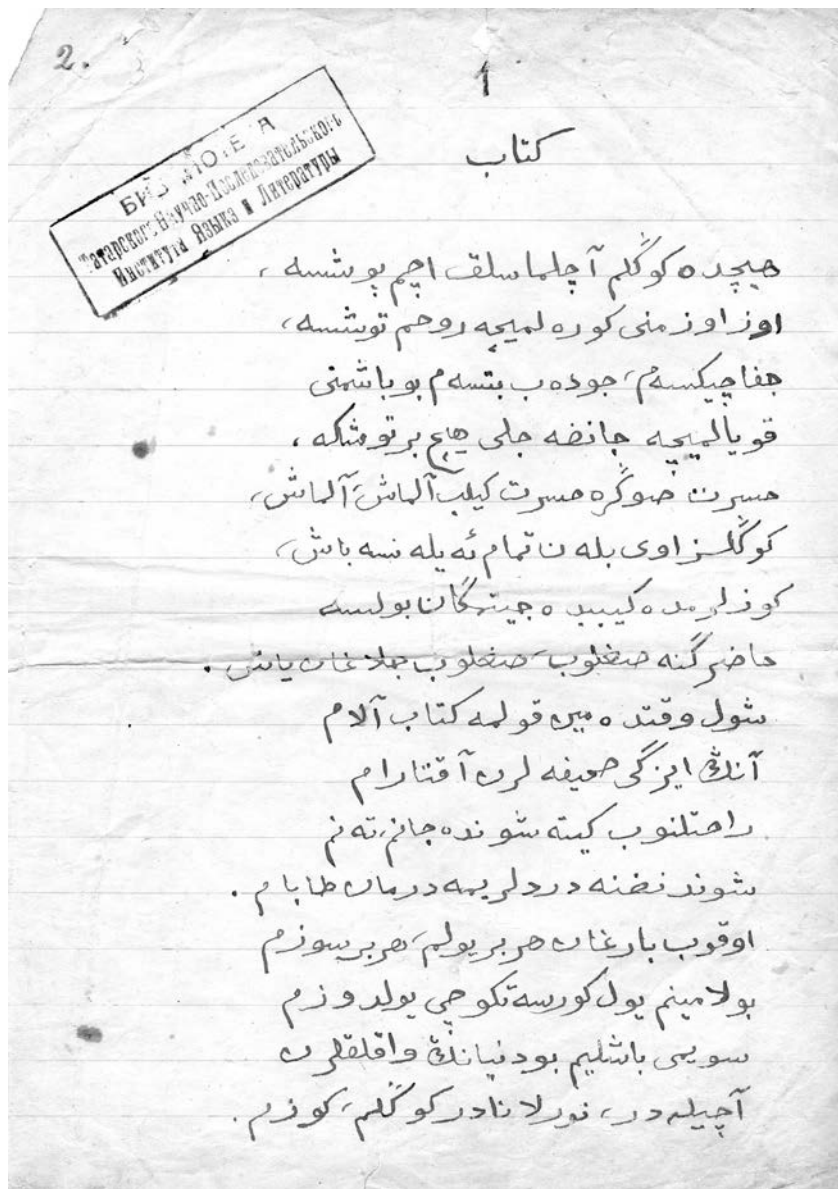 2.
1
БИБЛИОТЕКА
Татарского Научно-Исследовательского
Института Языка и Литературы
كتاب
هيچده كوڭلم آچلماسلق اچم پوشسه،
اوز اوزمنى كوره لميچه روحم توشسه،
جفا چيكسه م، جوده ب بتسه م بو باشمنى
قويالميچه جانغه جلى هيچ بر توشكه،
حسرت صوڭره حسرت كيلب آلماش، آلماش،
كوڭلسز اوى بله ن تمام ئه يله نسه باش،
كوزلرمده كيبيده جيتهگان بولسه
حاضر گنه صغلوب، صغلوب جلاغان ياش.
شول وقتده مين قولمه كتاب آلام
آنڭ ايزگى صحيفه لرن آقتارام
راحتلنوب كيته شونده جانم، ته نم
شوندنغنه دردلريمه درمان طابام.
اوقوب بارغان هربر يولم، هربر سوزم
بولا مينم يول كورسه تكوچى يولدوزم
سويمى باشليم بو دنيانڭ واقلقلرن
آچيله در، نورلانادر كوڭلم، كوزم.